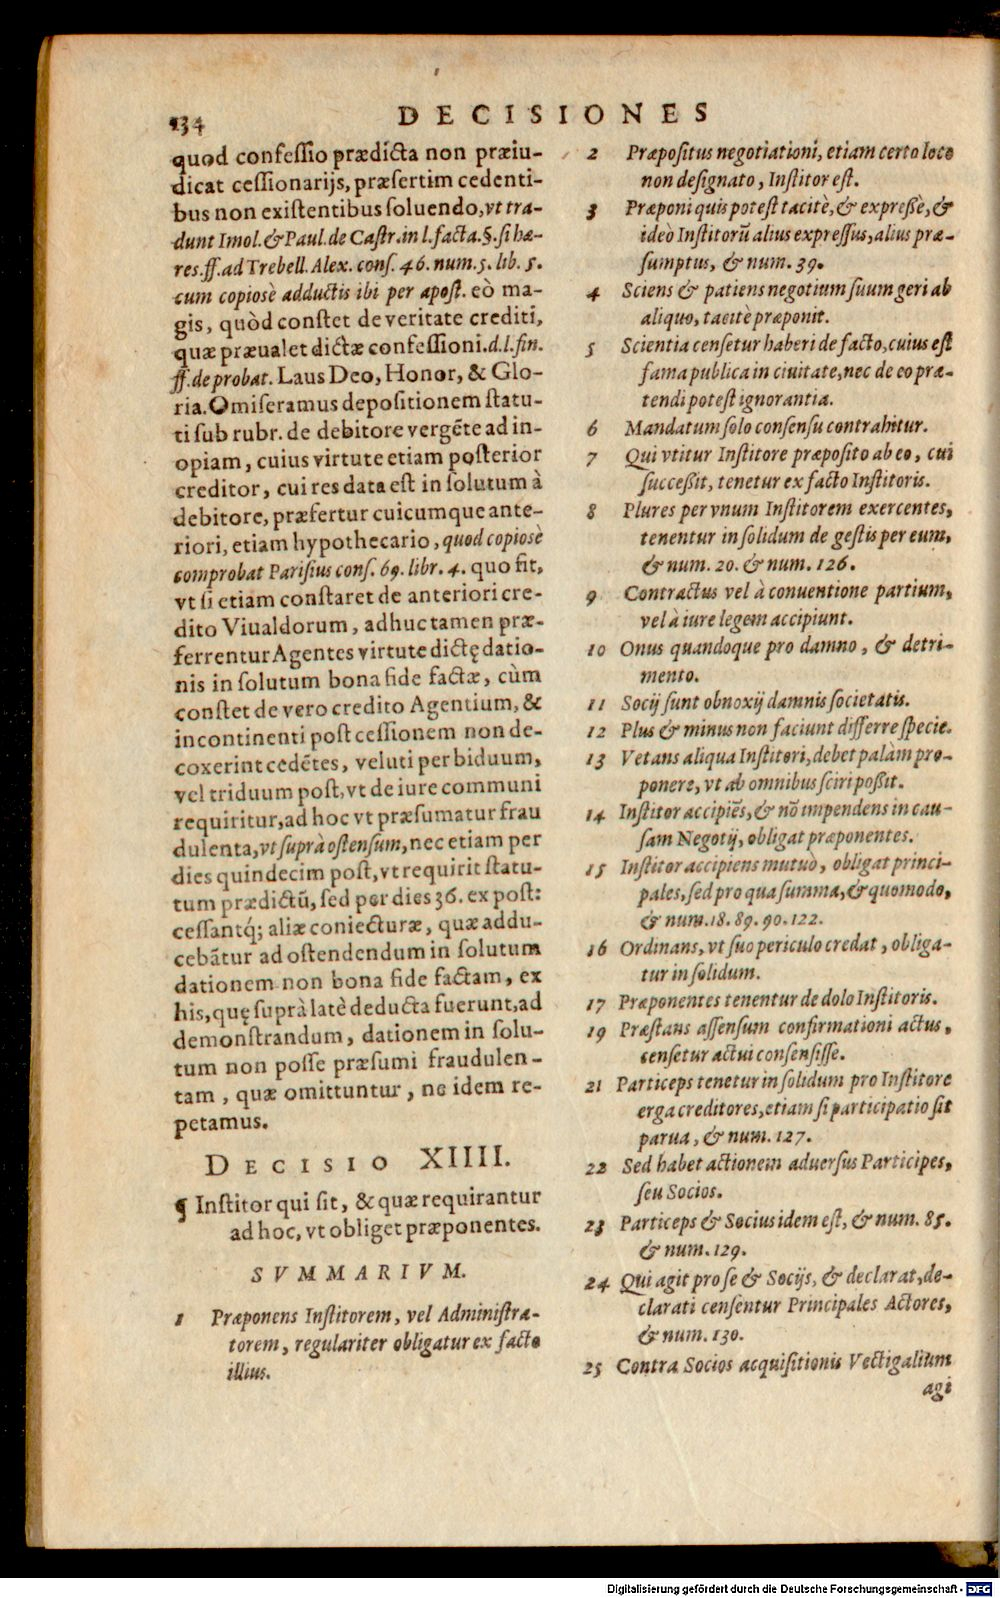 134 DECISIONES
quod confessio prædicta non præiu-
dicat cessionarijs, præsertim cedenti-
bus non existentibus soluendo, vt tra-
dunt Imol. & Paul. de Castr. in l. facta. §. si hæ-
res. ff. ad Trebell. Alex. cons. 46. num. 5. lib. 5.
cum copiosè adductis ibi per apost. eò ma-
gis, quòd constet de veritate crediti,
quæ præualet dictæ confessioni. d. l. fin.
ff. de probat. Laus Deo, Honor, & Glo-
ria. Omiseramus depositionem statu-
ti sub rubr. de debitore vergēte ad in-
opiam, cuius virtute etiam posterior
creditor, cui res data est in solutum à
debitore, præfertur cuicumque ante-
riori, etiam hypothecario, quod copiosè
comprobat Parisius cons. 69. libr. 4. quo fit,
vt si etiam constaret de anteriori cre-
dito Viualdorum, adhuc tamen præ-
ferrentur Agentes virtute dictę datio-
nis in solutum bona fide factæ, cùm
constet de vero credito Agentium, &
incontinenti post cessionem non de-
coxerint cedētes, veluti per biduum,
vel triduum post, vt de iure communi
requiritur, ad hoc vt præsumatur frau
dulenta, vt suprà ostensum, nec etiam per
dies quindecim post, vt requirit statu-
tum prædictū, sed per dies 36. ex post:
cessantq́; aliæ coniecturæ, quæ addu-
cebātur ad ostendendum in solutum
dationem non bona fide factam, ex
his, quę suprà latè deducta fuerunt, ad
demonstrandum, dationem in solu-
tum non posse præsumi fraudulen-
tam, quæ omittuntur, ne idem re-
petamus.
DECISIO XIIII.
¶ Institor qui sit, & quæ requirantur
ad hoc, vt obliget præponentes.
SVMMARIVM.
1 Præponens Institorem, vel Administra-
torem, regulariter obligatur ex facto
illius.
2 Præpositus negotiationi, etiam certo loco
non designato, Institor est.
3 Præponi quis potest tacitè, & expressè, &
ideò Institorū alius expressus, alius præ-
sumptus, & num. 39.
4 Sciens & patiens negotium suum geri ab
aliquo, tacitè præponit.
5 Scientia censetur haberi de facto, cuius est
fama publica in ciuitate, nec de eo præ-
tendi potest ignorantia.
6 Mandatum solo consensu contrahitur.
7 Qui vtitur Institore præposito ab eo, cui
successit, tenetur ex facto Institoris.
8 Plures per vnum Institorem exercentes,
tenentur in solidum de gestis per eum,
& num. 20. & num. 126.
9 Contractus vel à conuentione partium,
vel à iure legem accipiunt.
10 Onus quandoque pro damno, & detri-
mento.
11 Socij sunt obnoxij damnis societatis.
12 Plus & minus non faciunt differre specie.
13 Vetans aliqua Institori, debet palàm pro-
ponere, vt ab omnibus sciri possit.
14 Institor accipiēs, & nō impendens in cau-
sam Negotij, obligat præponentes.
15 Institor accipiens mutuò, obligat princi-
pales, sed pro qua summa, & quomodo,
& num. 18. 89. 90. 122.
16 Ordinans, vt suo periculo credat, obliga-
tur in solidum.
17 Præponentes tenentur de dolo Institoris.
19 Præstans assensum confirmationi actus,
censetur actui consensisse.
21 Particeps tenetur in solidum pro Institore
erga creditores, etiam si participatio sit
parua, & num. 127.
22 Sed habet actionem aduersus Participes,
seu Socios.
23 Particeps & Socius idem est, & num. 85.
& num. 129.
24 Qui agit pro se & Socijs, & declarat, de-
clarati censentur Principales Actores,
& num. 130.
25 Contra Socios acquisitionis Vectigalium
agi
Digitalisierung gefördert durch die Deutsche Forschungsgemeinschaft - DFG